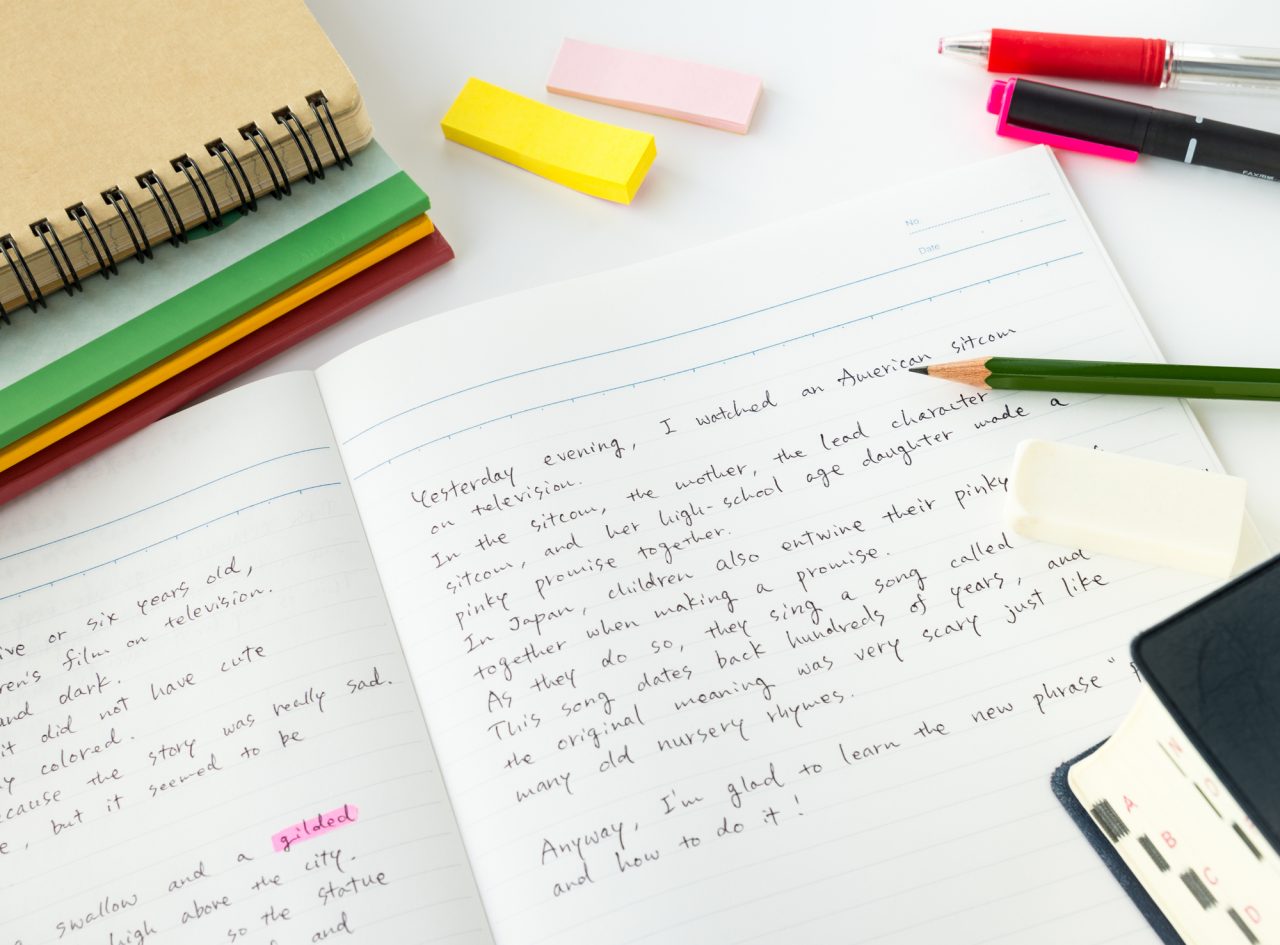 five or six years old,
children's film on television.
and dark.
it did not have cute
colored.
because the story was really sad.
, but it seemed to be
swallow and a gilded
high above the city.
so the statue
and
No.
Date
Yesterday evening, I watched an American sitcom
on television.
In the sitcom, the mother, the lead character
sitcom, and her high-school age daughter made a
pinky promise together.
In Japan, children also entwine their pinky
together when making a promise.
As they do so, they sing a song called
This song dates back hundreds of years, and
the original meaning was very scary just like
many old nursery rhymes.
Anyway, I'm glad to learn the new phrase "
and how to do it!
A
B
C
D
N